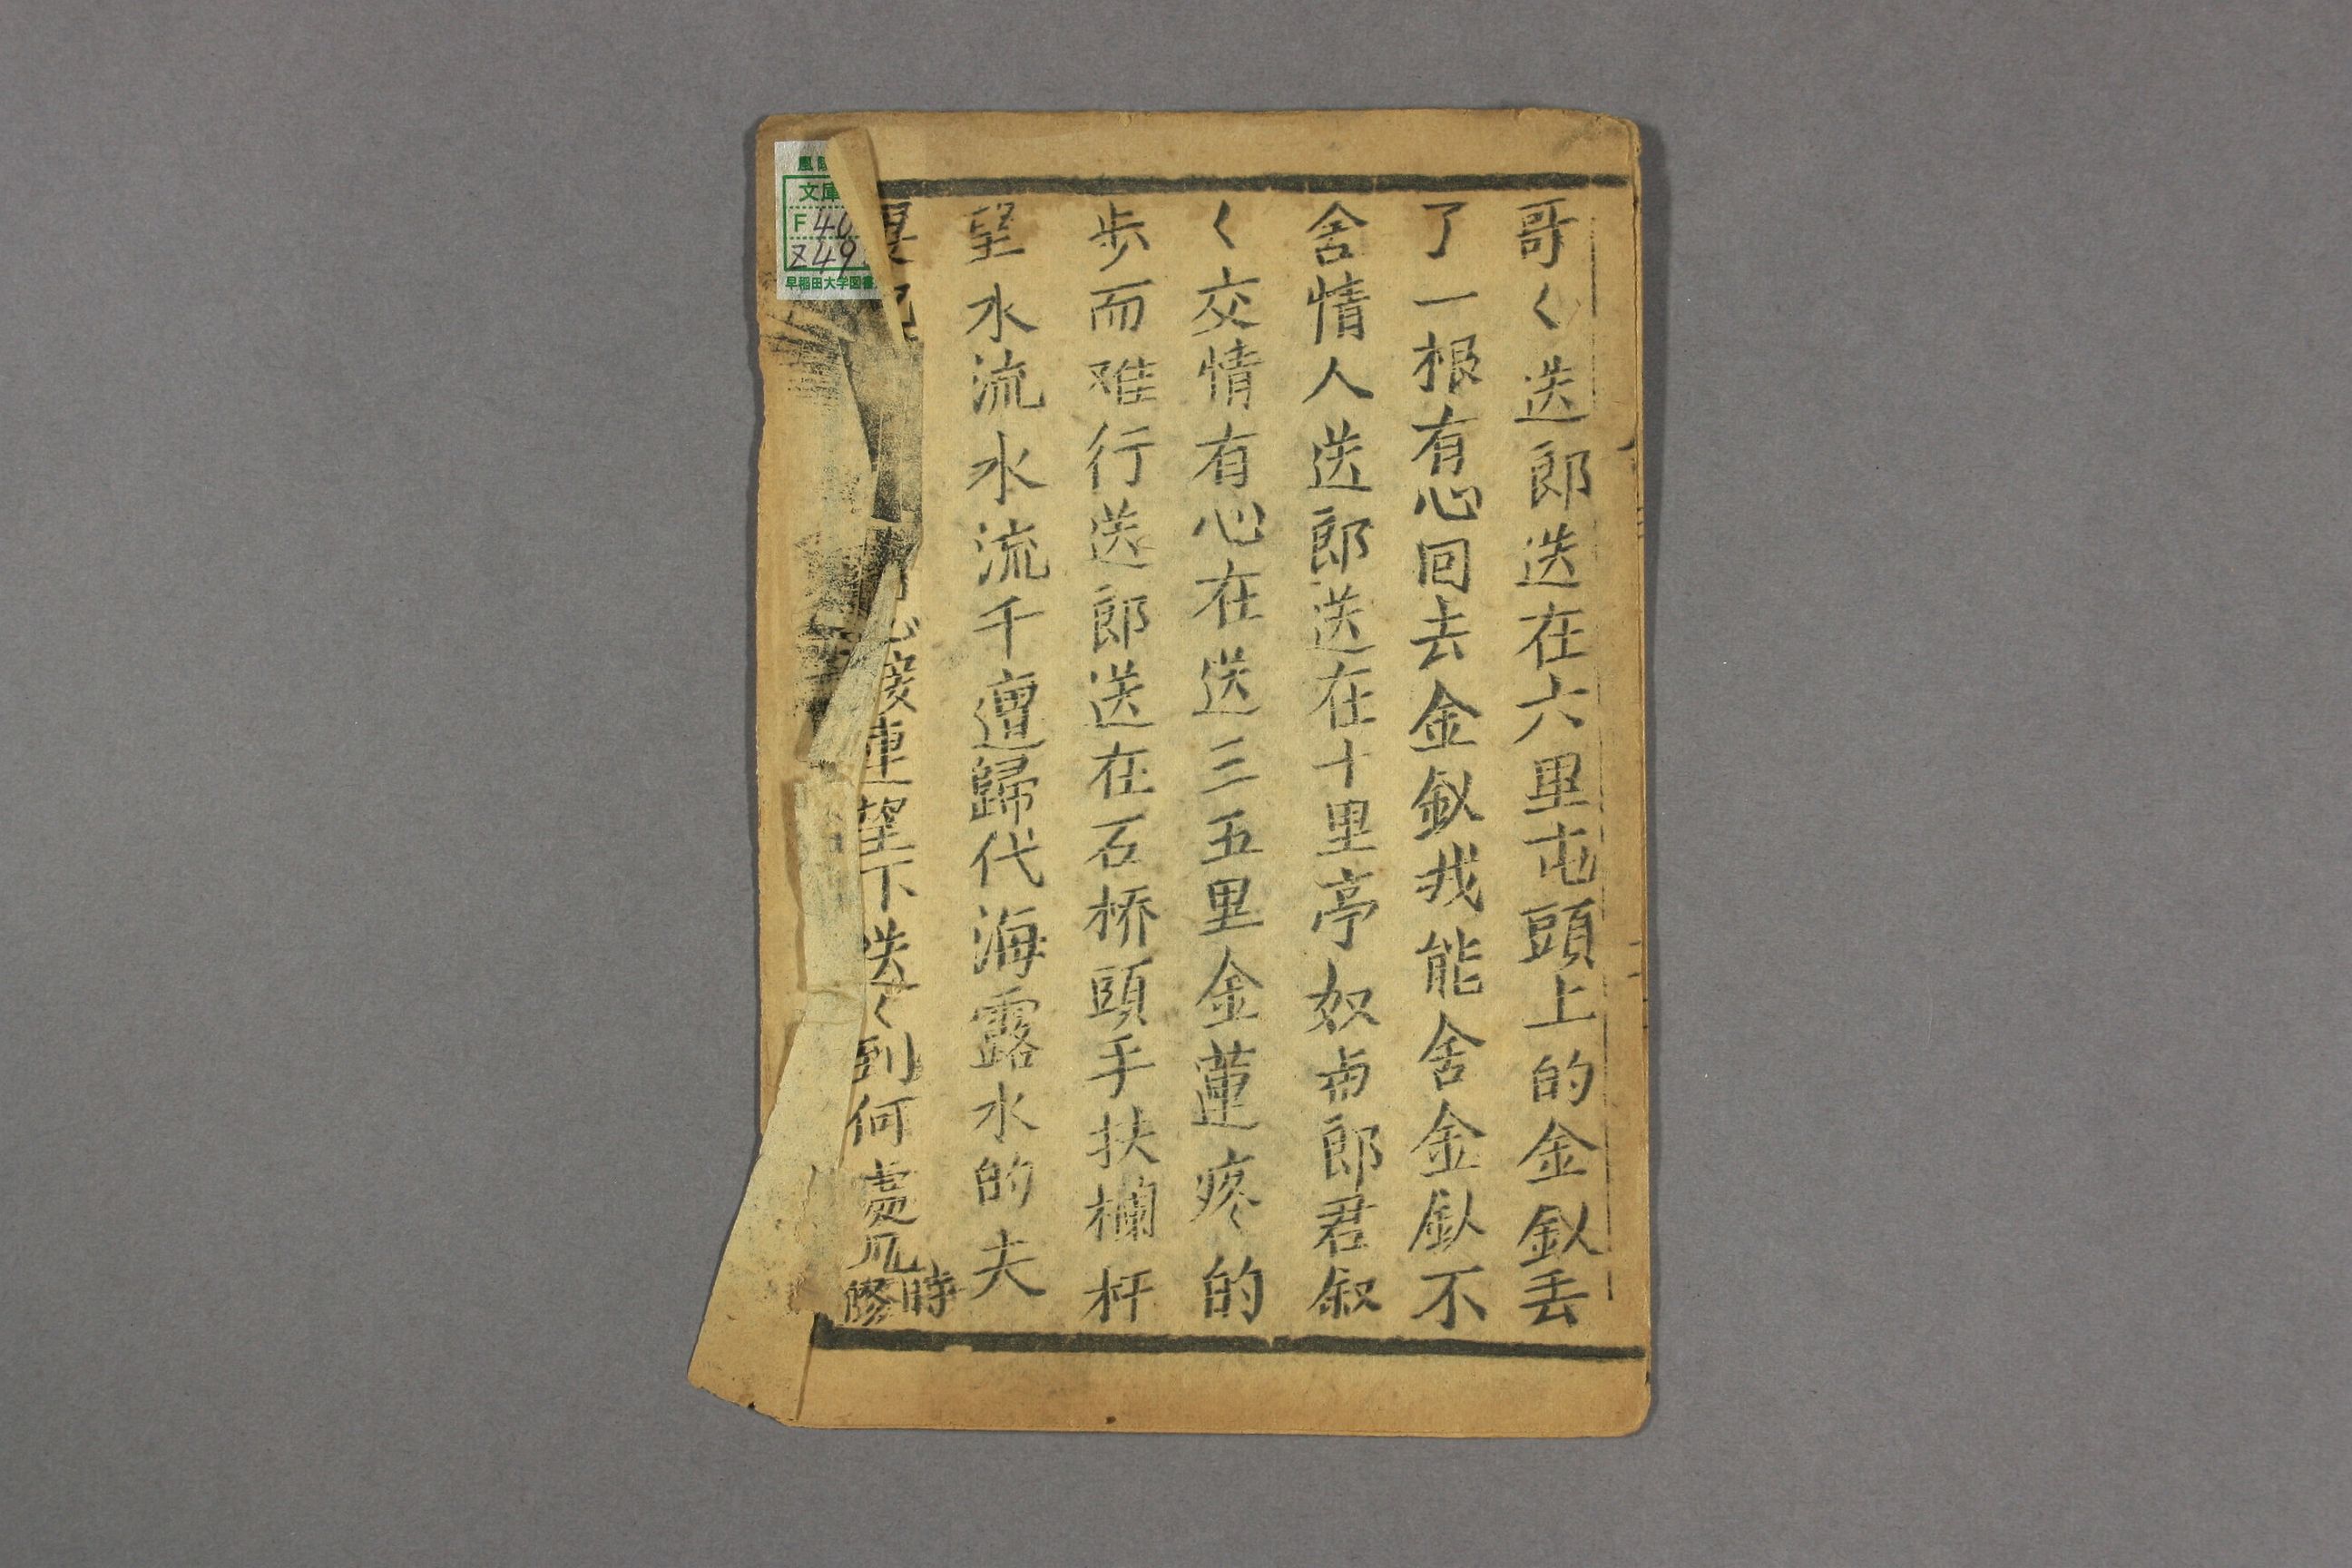 哥〱送郎送在六里屯頭上的金釵丢
了一根有心回去金釵我能舍金釵不
舍情人送郎送在十里亭奴㕥郎君叙
〱交情有心在送三五里金蓮疼的
步而难行送郎送在石桥頭手扶欄杆
望水流水流千遭歸代海露水的夫
心接連望下送〱到何處凡時修
文庫
F40
Z49
早稲田大学図書